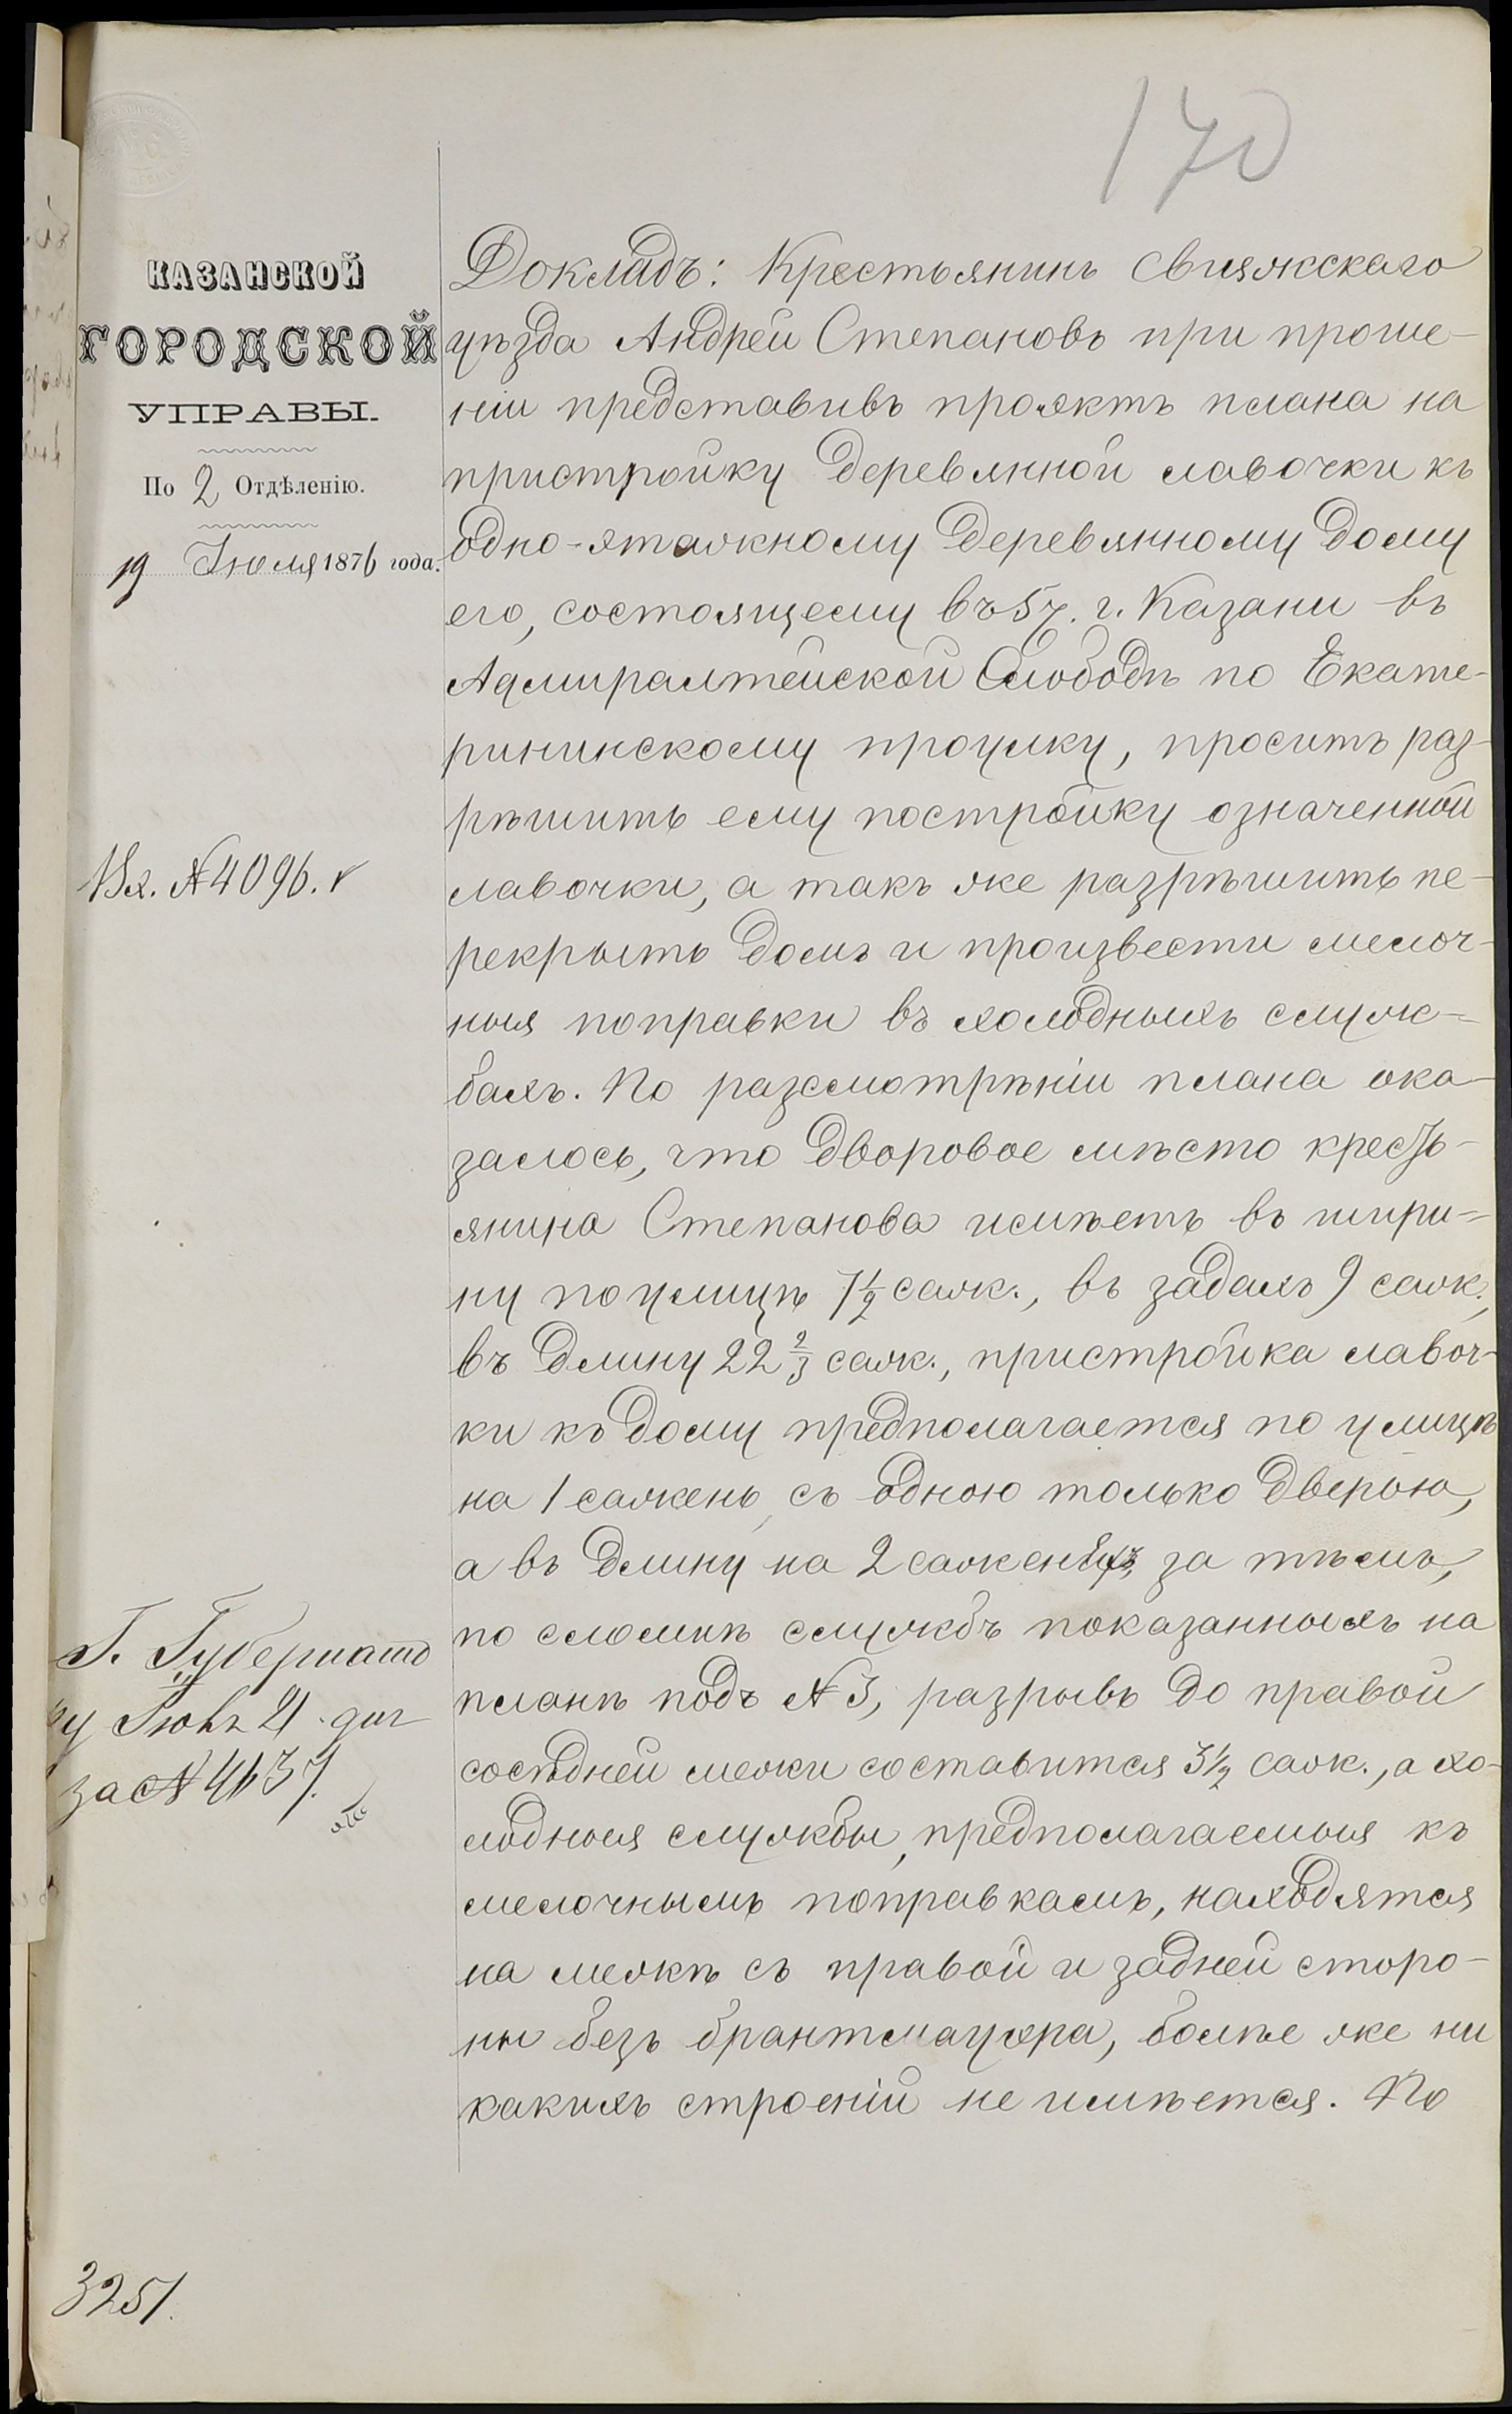 170
КАЗАНСКОЙ
ГОРОДСКОЙ
УПРАВЫ.
По 2 Отдѣленію.
19 Іюля 1876 года.
Вх. №4096.
Г. Губернато
ру Іюля 21 дня
за №4637.
3251.
Докладъ: Крестьянинъ Свияжскаго
уѣзда Андрей Степановъ при проше-
ніи представивъ проэктъ плана на
пристройку деревянной лавочки къ
одно-этажному деревянному дому
его, состоящему въ 5 ч. г. Казани въ
Адмиралтейской Слободѣ по Екате-
рининскому проулку, проситъ раз-
рѣшить ему постройку означенной
лавочки, а такъ же разрѣшить пе-
рекрыть домъ и произвести мелоч-
ныя поправки въ холодныхъ служ=
бахъ. По разсмотрѣніи плана ока-
залось, что дворовое мѣсто кресть-
янина Степанова имѣетъ въ шири=
ну по улицѣ 7 1/2 саж., въ задахъ 9 саж.,
въ длину 22 2/3 саж., пристройка лавоч-
ки къ дому предполагается по улицѣ
на 1 сажень, съ одною только дверью,
а въ длину на 2 сажени, за тѣмъ,
по сломкѣ службъ показанныхъ на
планѣ подъ №3, разрывъ до правой
сосѣдней межи составится 3 1/2 саж., а хо-
лодныя службы, предполагаемыя къ
мелочнымъ поправкамъ, находятся
на межѣ съ правой и задней сторо-
ны безъ брантмауэра, болѣе же ни
какихъ строеній не имѣется. По